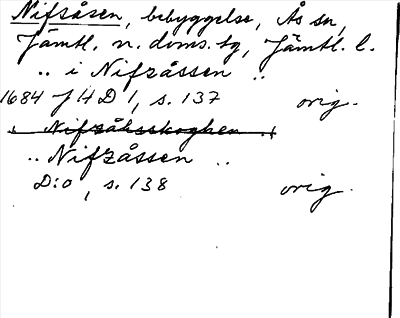 Nifsåsen, bebyggelse, Ås sn,
Jämtl. n. doms. tg, Jämtl. l.
.. i Nifzåssen ..
1684 J 4 D 1, s. 137 orig.
Nifzåhsskoghen
.. Nifzåssen ..
D:o, s. 138 orig.